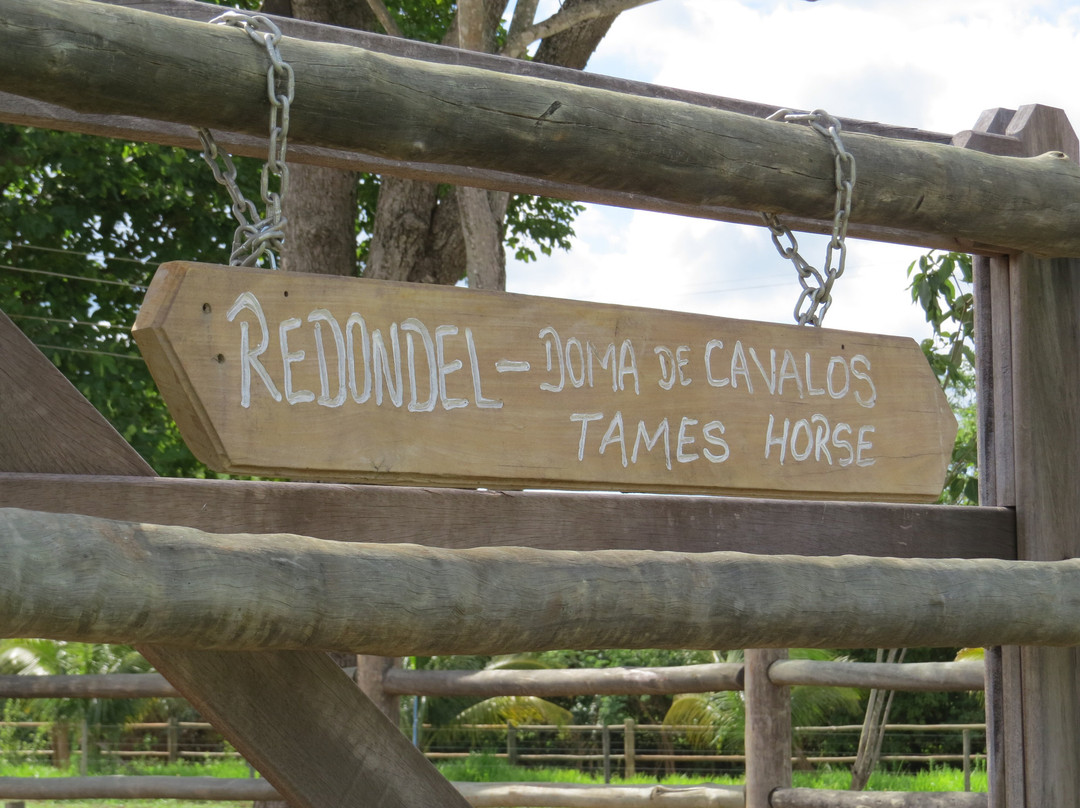 REDONDEL - DOMA DE CAVALOS
TAMES HORSE